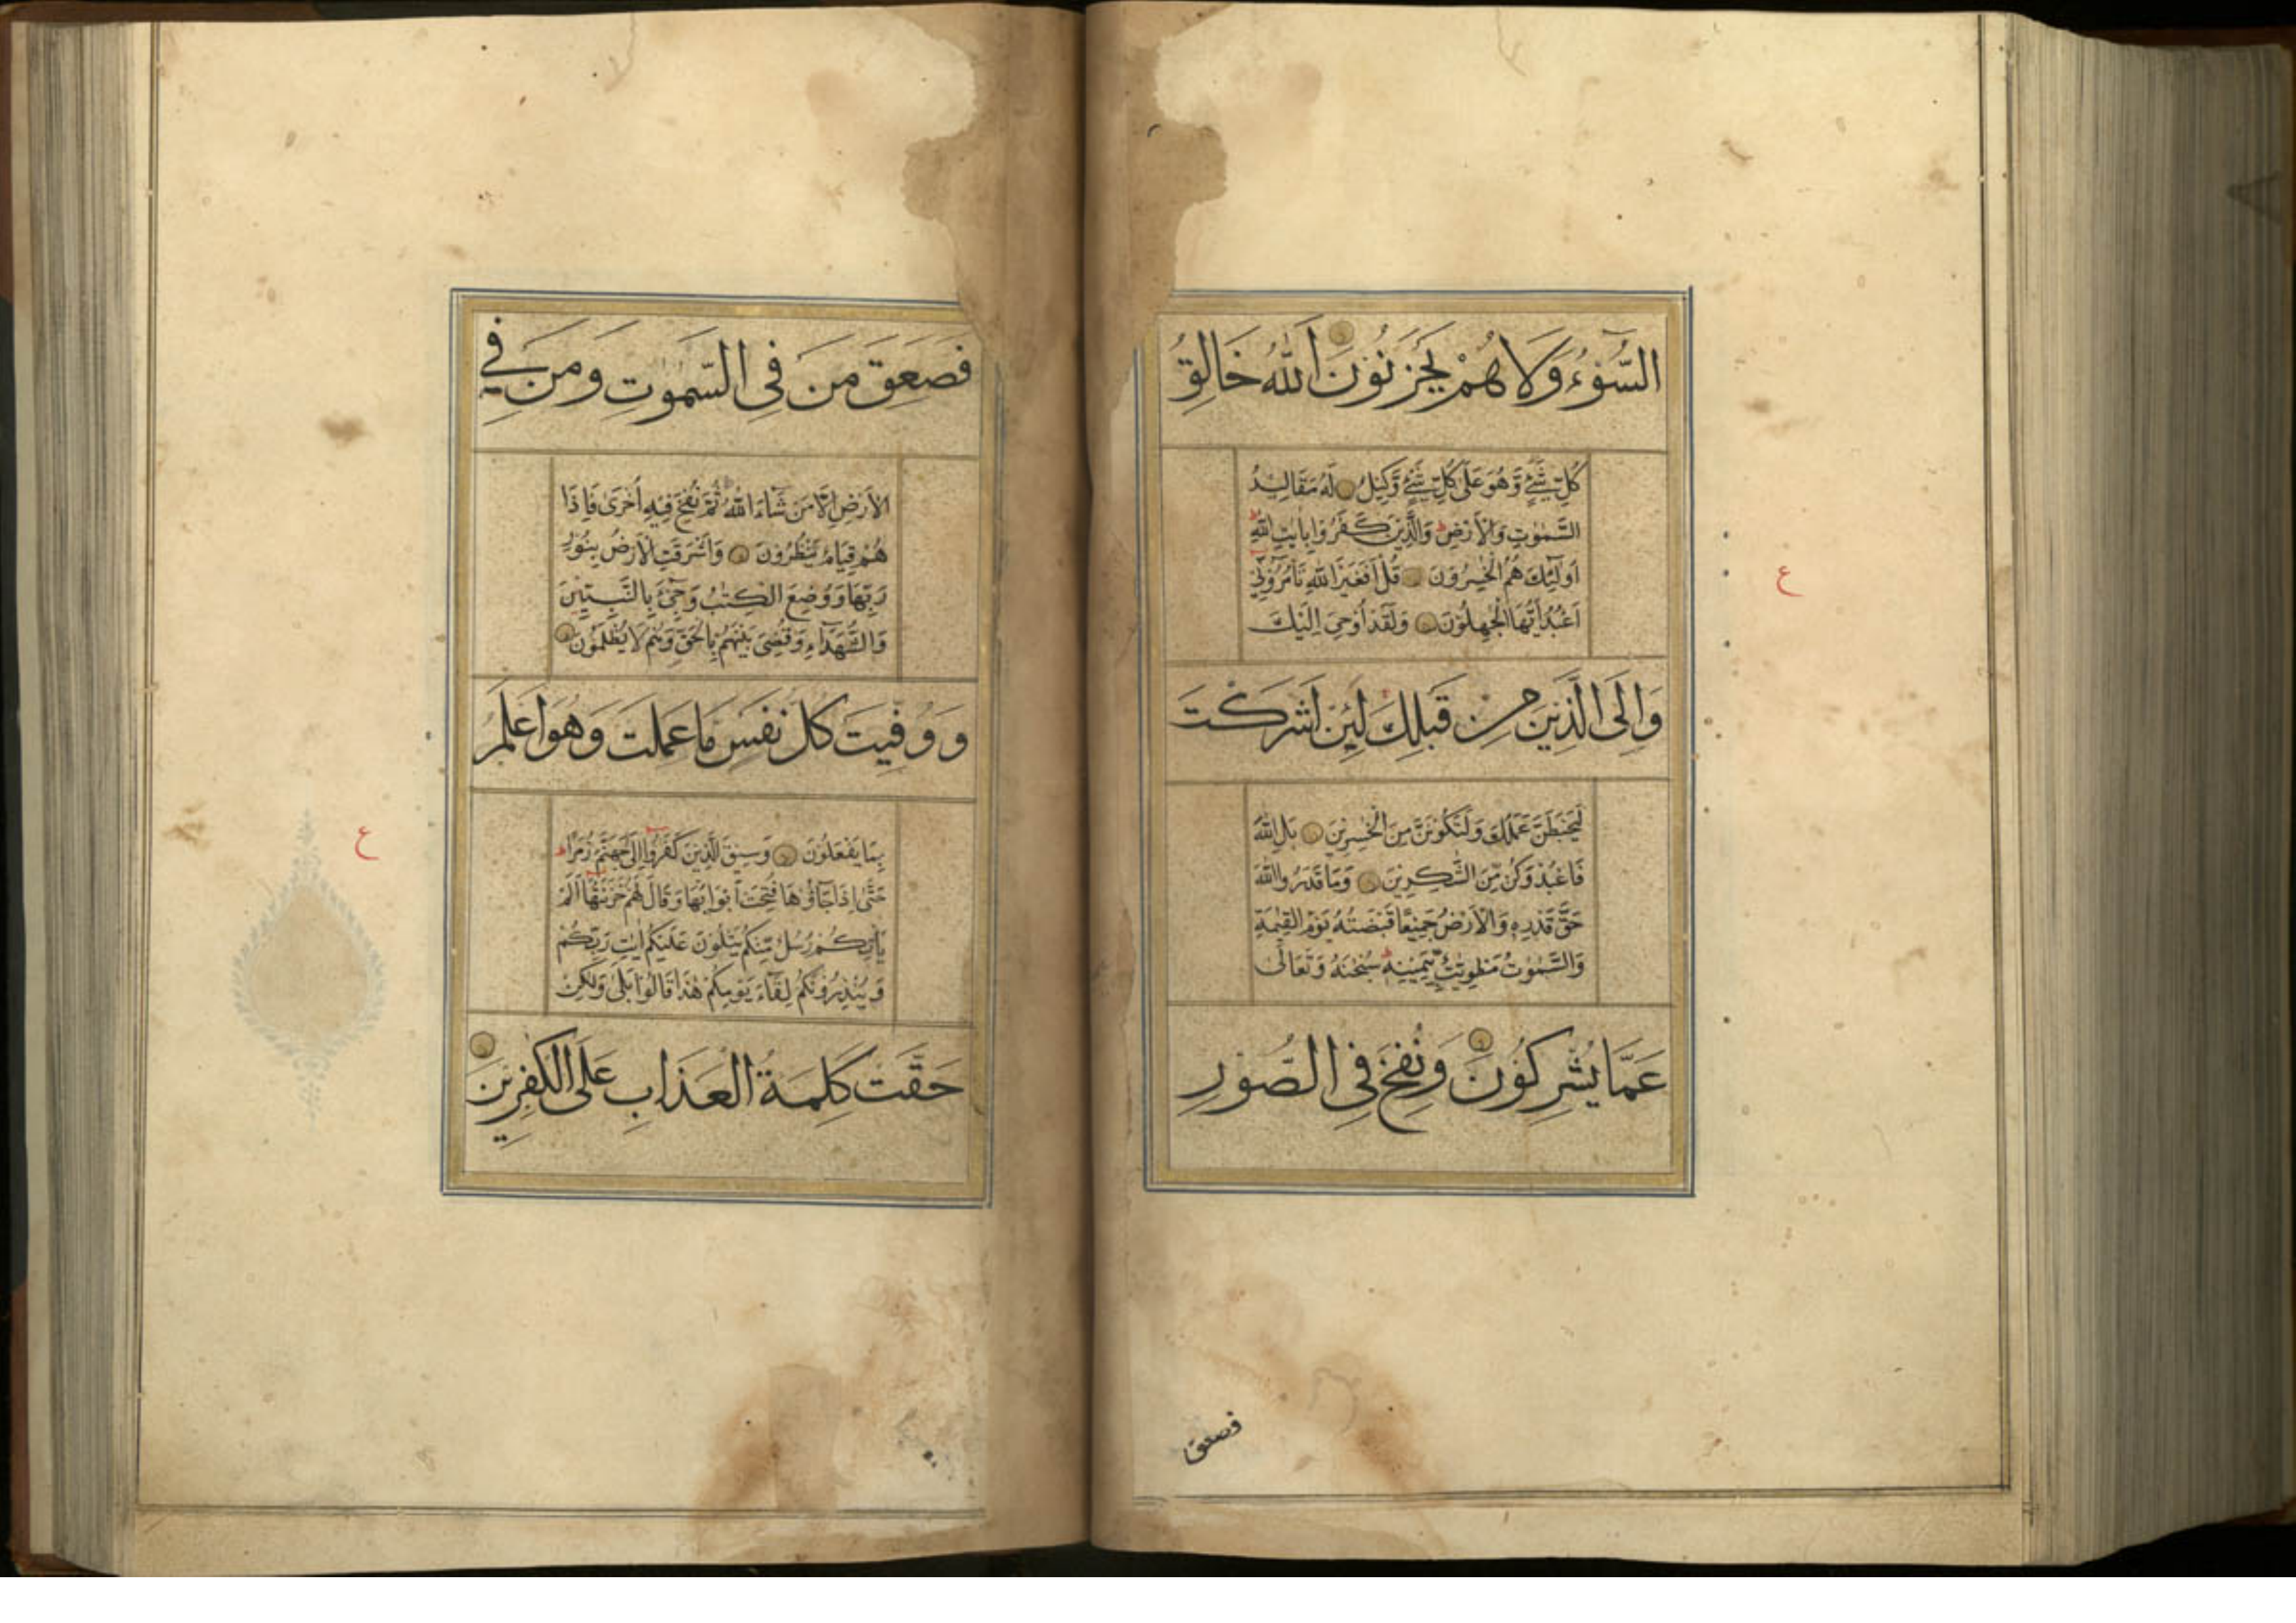 السُّوْءُ وَلَا هُمْ يَحْزَنُوْنَ اَللّٰهُ خَالِقُ
كُلِّ شَيْءٍ وَّهُوَ عَلٰى كُلِّ شَيْءٍ وَّكِيْلٌ لَهٗ مَقَالِيْدُ
السَّمٰوٰتِ وَالْاَرْضِ ط وَالَّذِيْنَ كَفَرُوْا بِاٰيٰتِ اللّٰهِ
اُولٰٓئِكَ هُمُ الْخٰسِرُوْنَ قُلْ اَفَغَيْرَ اللّٰهِ تَأْمُرُوْٓنِّيْ
اَعْبُدُ اَيُّهَا الْجٰهِلُوْنَ وَلَقَدْ اُوْحِيَ اِلَيْكَ
وَاِلَى الَّذِيْنَ مِنْ قَبْلِكَ لَئِنْ اَشْرَكْتَ
لَيَحْبَطَنَّ عَمَلُكَ وَلَتَكُوْنَنَّ مِنَ الْخٰسِرِيْنَ بَلِ اللّٰهَ
فَاعْبُدْ وَكُنْ مِّنَ الشّٰكِرِيْنَ وَمَا قَدَرُوا اللّٰهَ
حَقَّ قَدْرِهٖ وَالْاَرْضُ جَمِيْعًا قَبْضَتُهٗ يَوْمَ الْقِيٰمَةِ
وَالسَّمٰوٰتُ مَطْوِيّٰتٌ بِيَمِيْنِهٖ ط سُبْحٰنَهٗ وَتَعَالٰى
عَمَّا يُشْرِكُوْنَ وَنُفِخَ فِى الصُّوْرِ
ع
فصعق
فَصَعِقَ مَنْ فِى السَّمٰوٰتِ وَمَنْ فِي
الْاَرْضِ اِلَّا مَنْ شَآءَ اللّٰهُ ثُمَّ نُفِخَ فِيْهِ اُخْرٰى فَاِذَا
هُمْ قِيَامٌ يَّنْظُرُوْنَ وَاَشْرَقَتِ الْاَرْضُ بِنُوْرِ
رَبِّهَا وَوُضِعَ الْكِتٰبُ وَجِيْٓءَ بِالنَّبِيّٖنَ
وَالشُّهَدَآءِ وَقُضِيَ بَيْنَهُمْ بِالْحَقِّ وَهُمْ لَا يُظْلَمُوْنَ
وَوُفِّيَتْ كُلُّ نَفْسٍ مَّا عَمِلَتْ وَهُوَ اَعْلَمُ
بِمَا يَفْعَلُوْنَ وَسِيْقَ الَّذِيْنَ كَفَرُوْٓا اِلٰى جَهَنَّمَ زُمَرًا ط
حَتّٰٓى اِذَا جَآءُوْهَا فُتِحَتْ اَبْوَابُهَا وَقَالَ لَهُمْ خَزَنَتُهَآ اَلَمْ
يَأْتِكُمْ رُسُلٌ مِّنْكُمْ يَتْلُوْنَ عَلَيْكُمْ اٰيٰتِ رَبِّكُمْ
وَيُنْذِرُوْنَكُمْ لِقَآءَ يَوْمِكُمْ هٰذَا قَالُوْا بَلٰى وَلٰكِنْ
حَقَّتْ كَلِمَةُ الْعَذَابِ عَلَى الْكٰفِرِيْنَ
ع